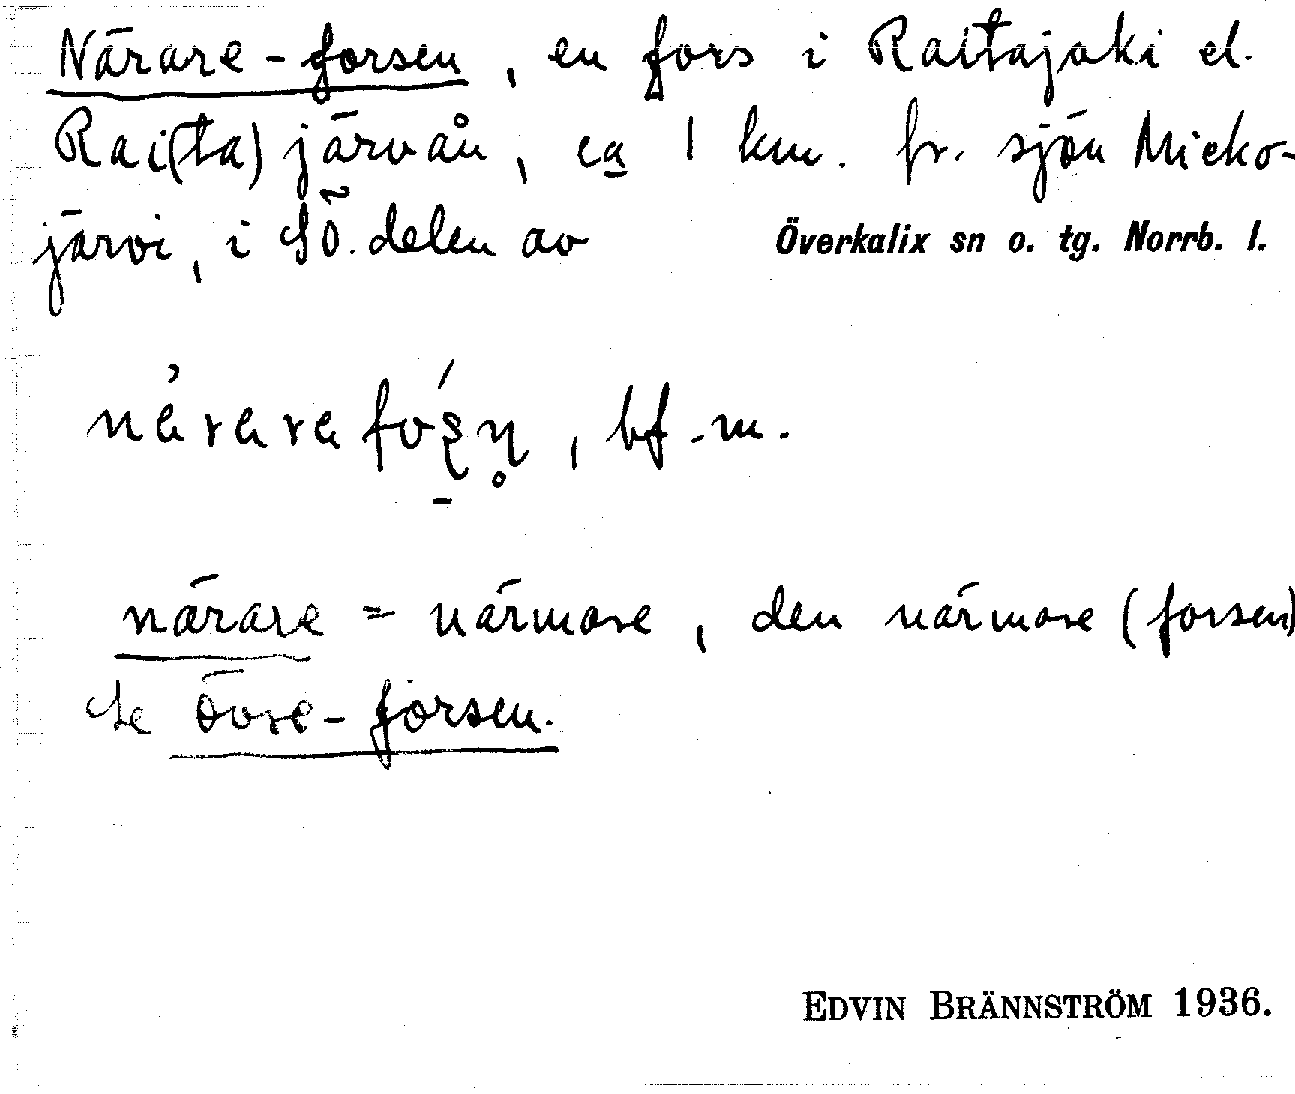 Närare-forsen, en fors i Raitajoki el.
Rai(ta)järvån, ca 1 km. fr. sjön Micko-
järvi, i SÖ. delen av Överkalix sn o. tg. Norrb. l.
bf. m.
närare = närmare, den närmare (forsen)
Se övre-forsen.
EDVIN BRÄNNSTRÖM 1936.